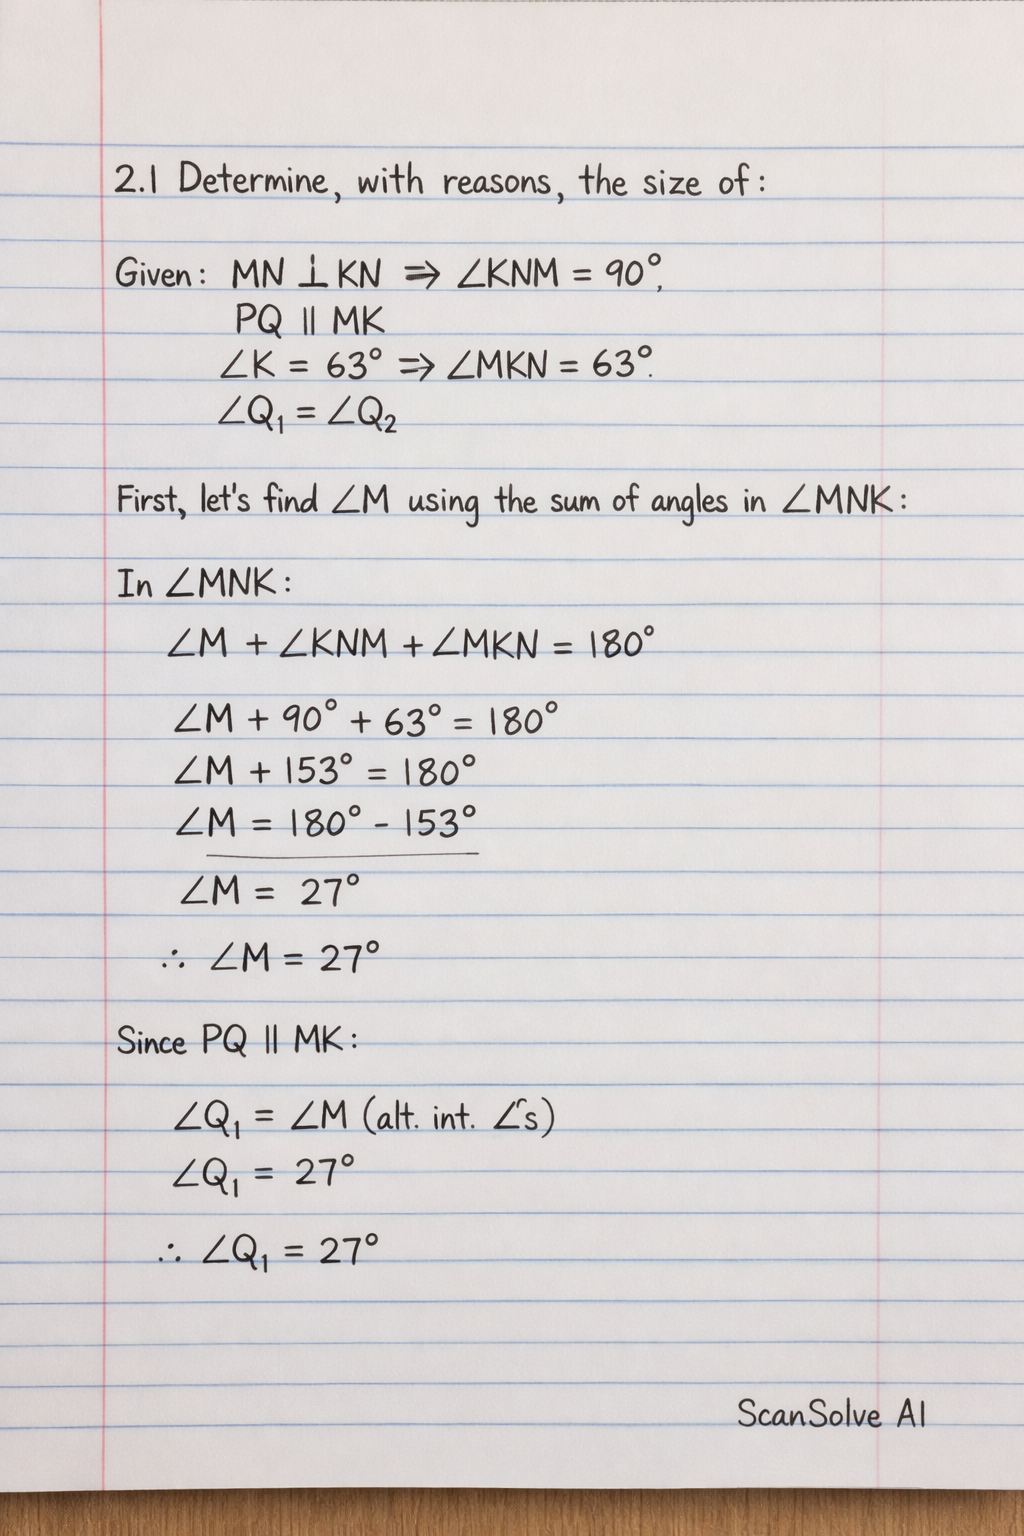 2.1 Determine, with reasons, the size of:
Given: MN ⊥ KN ⇒ ∠KNM = 90°,
PQ || MK
∠K = 63° ⇒ ∠MKN = 63°.
∠Q₁ = ∠Q₂
First, let's find ∠M using the sum of angles in ∠MNK:
In ∠MNK:
∠M + ∠KNM + ∠MKN = 180°
∠M + 90° + 63° = 180°
∠M + 153° = 180°
∠M = 180° - 153°
∠M = 27°
∴ ∠M = 27°
Since PQ || MK:
∠Q₁ = ∠M (alt. int. ∠'s)
∠Q₁ = 27°
∴ ∠Q₁ = 27°
ScanSolve AI